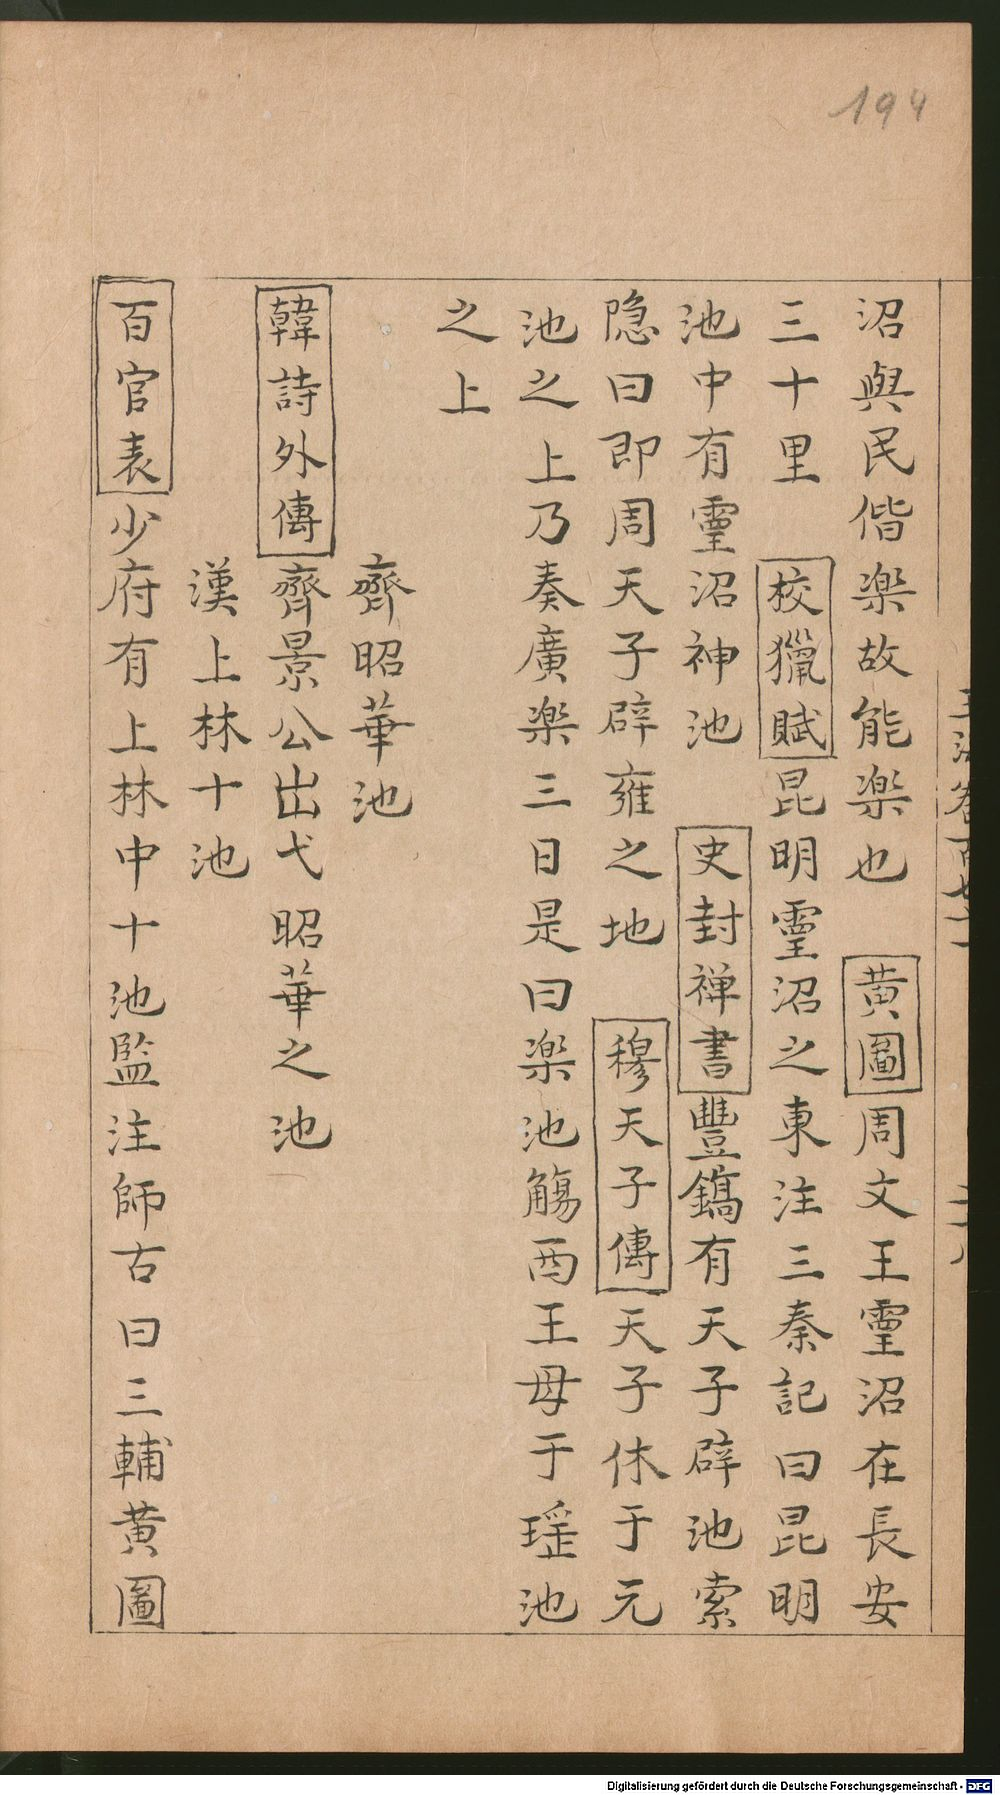 194
沼與民偕楽故能楽也　黄圖周文王霊沼在長安
三十里　校獵賦昆明霊沼之東注三秦記曰昆明
池中有霊沼神池　史封禅書豐鎬有天子辟池索
隐曰即周天子辟雍之地　穆天子傳天子休于元
池之上乃奏廣楽三日是曰楽池觴西王母于瑶池
之上
齊昭華池
韓詩外傳齊景公出弋昭華之池
漢上林十池
百官表少府有上林中十池監注師古曰三輔黄圖
Digitalisierung gefördert durch die Deutsche Forschungsgemeinschaft - DFG